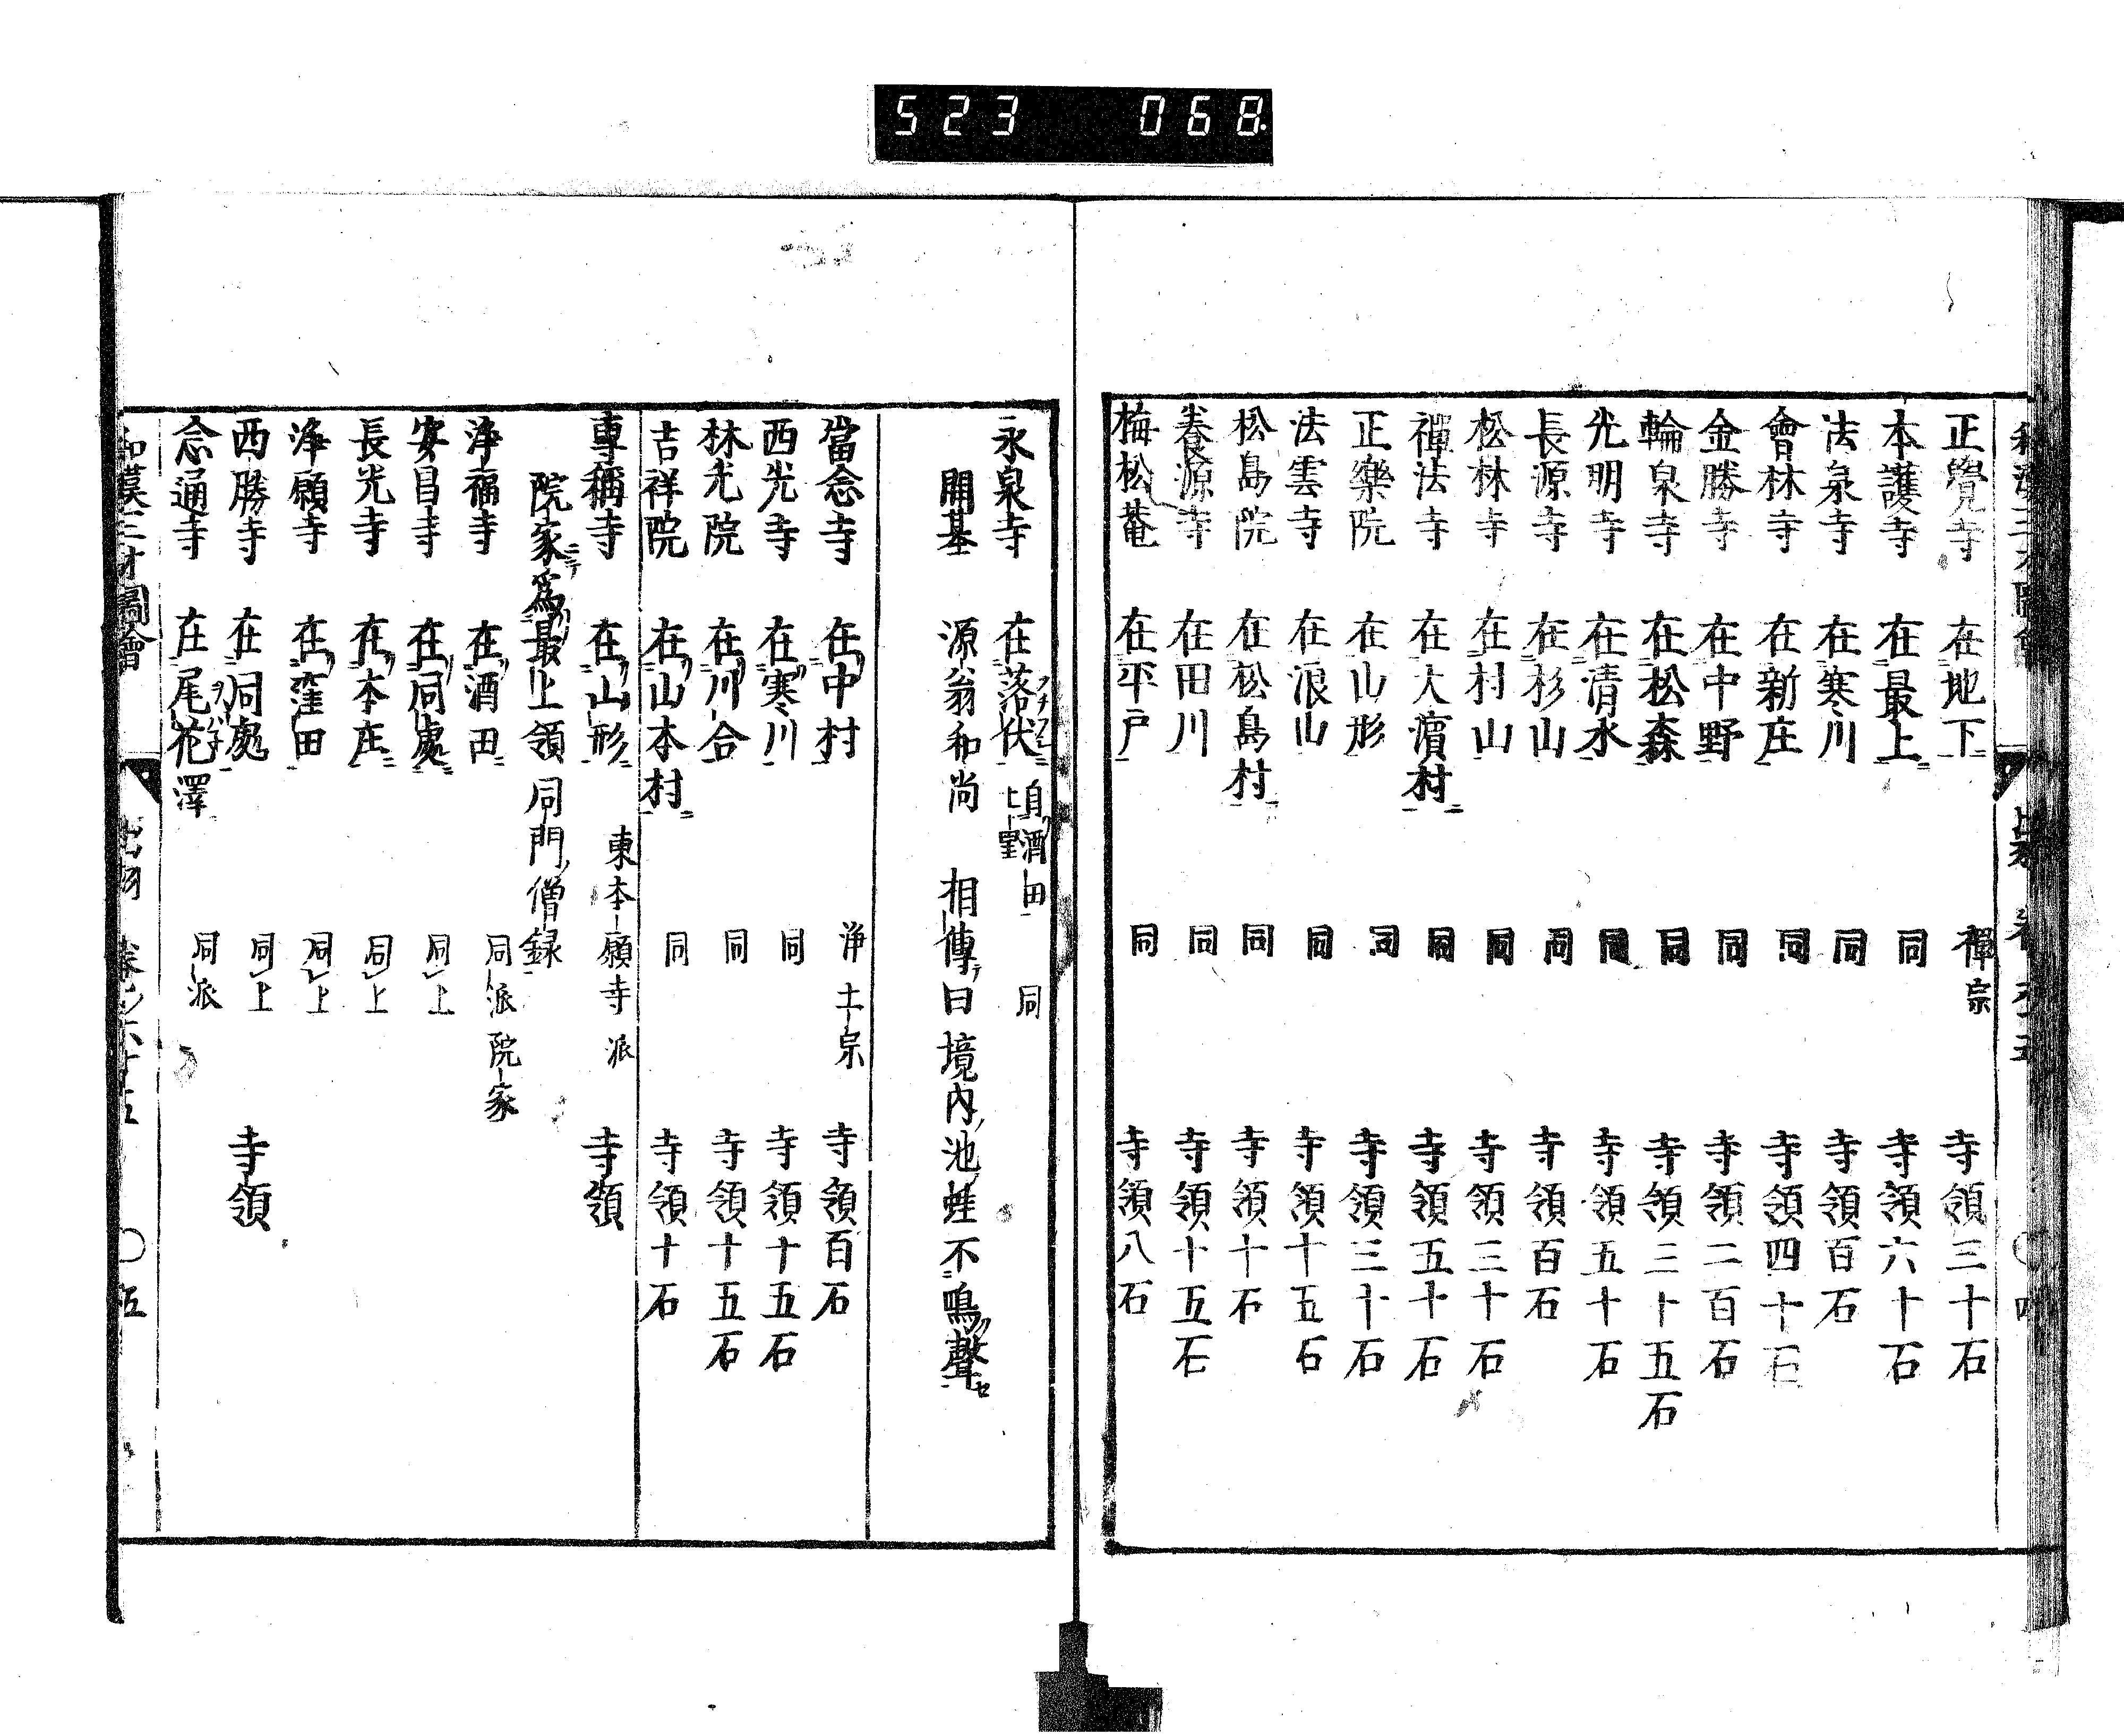 523 068.
正覺寺 在地下 禪宗 寺領三十石
本護寺 在最上 同 寺領六十石
法泉寺 在寒川 同 寺領百石
會林寺 在新庄 同 寺領四十石
金勝寺 在中野 同 寺領二百石
輪泉寺 在松森 同 寺領三十五石
光明寺 在清水 同 寺領五十石
長源寺 在杉山 同 寺領百石
松林寺 在村山 同 寺領三十石
禪法寺 在大濵村 同 寺領五十石
正樂院 在山形 同 寺領三十石
法雲寺 在浪山 同 寺領十五石
松島院 在松島村 同 寺領十石
養源寺 在田川 同 寺領十五石
梅松菴 在平戸 同 寺領八石
永泉寺 在落伏 自酒田七里 同
開基 源翁和尚 相傳テ曰境内ノ池ノ蛙不鳴聲
當念寺 在中村 浄土宗 寺領百石
西光寺 在寒川 同 寺領十五石
林光院 在川合 同 寺領十五石
吉祥院 在山本村 同 寺領十石
專稱寺 在山形 東本願寺派 寺領
院家ニテ爲最上領同門ノ僧録
浄福寺 在酒田 同派院家
安昌寺 在同處 同上
長光寺 在本庄 同上
浄願寺 在窪田 同上
西勝寺 在同處 同上 寺領
念通寺 在尾花澤 同派
和漢三才圖會 卷之六十五 ○五